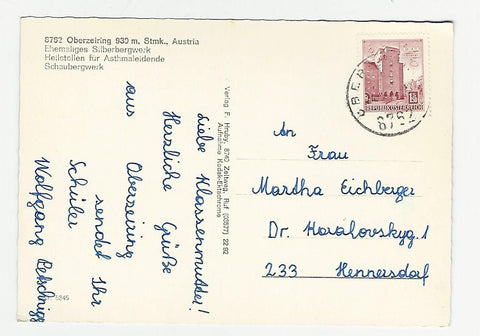 8762 Oberzeiring 930 m, Stmk., Austria
Ehemaliges Silberbergwerk
Heilstollen für Asthmaleidende
Schaubergwerk
Liebe Klassenmutter!
Herzliche Grüße
aus Oberzeiring
sendet Ihr
Schüler
Wolfgang
5245
Verlag F. Hruby, 8740 Zeltweg, Ruf (03577) 22 92
Aufnahme Kodak-Ektachrome
REPUBLIK ÖSTERREICH
8762
An
Frau
Martha Eichberger
Dr. 1
233 Hennersdorf